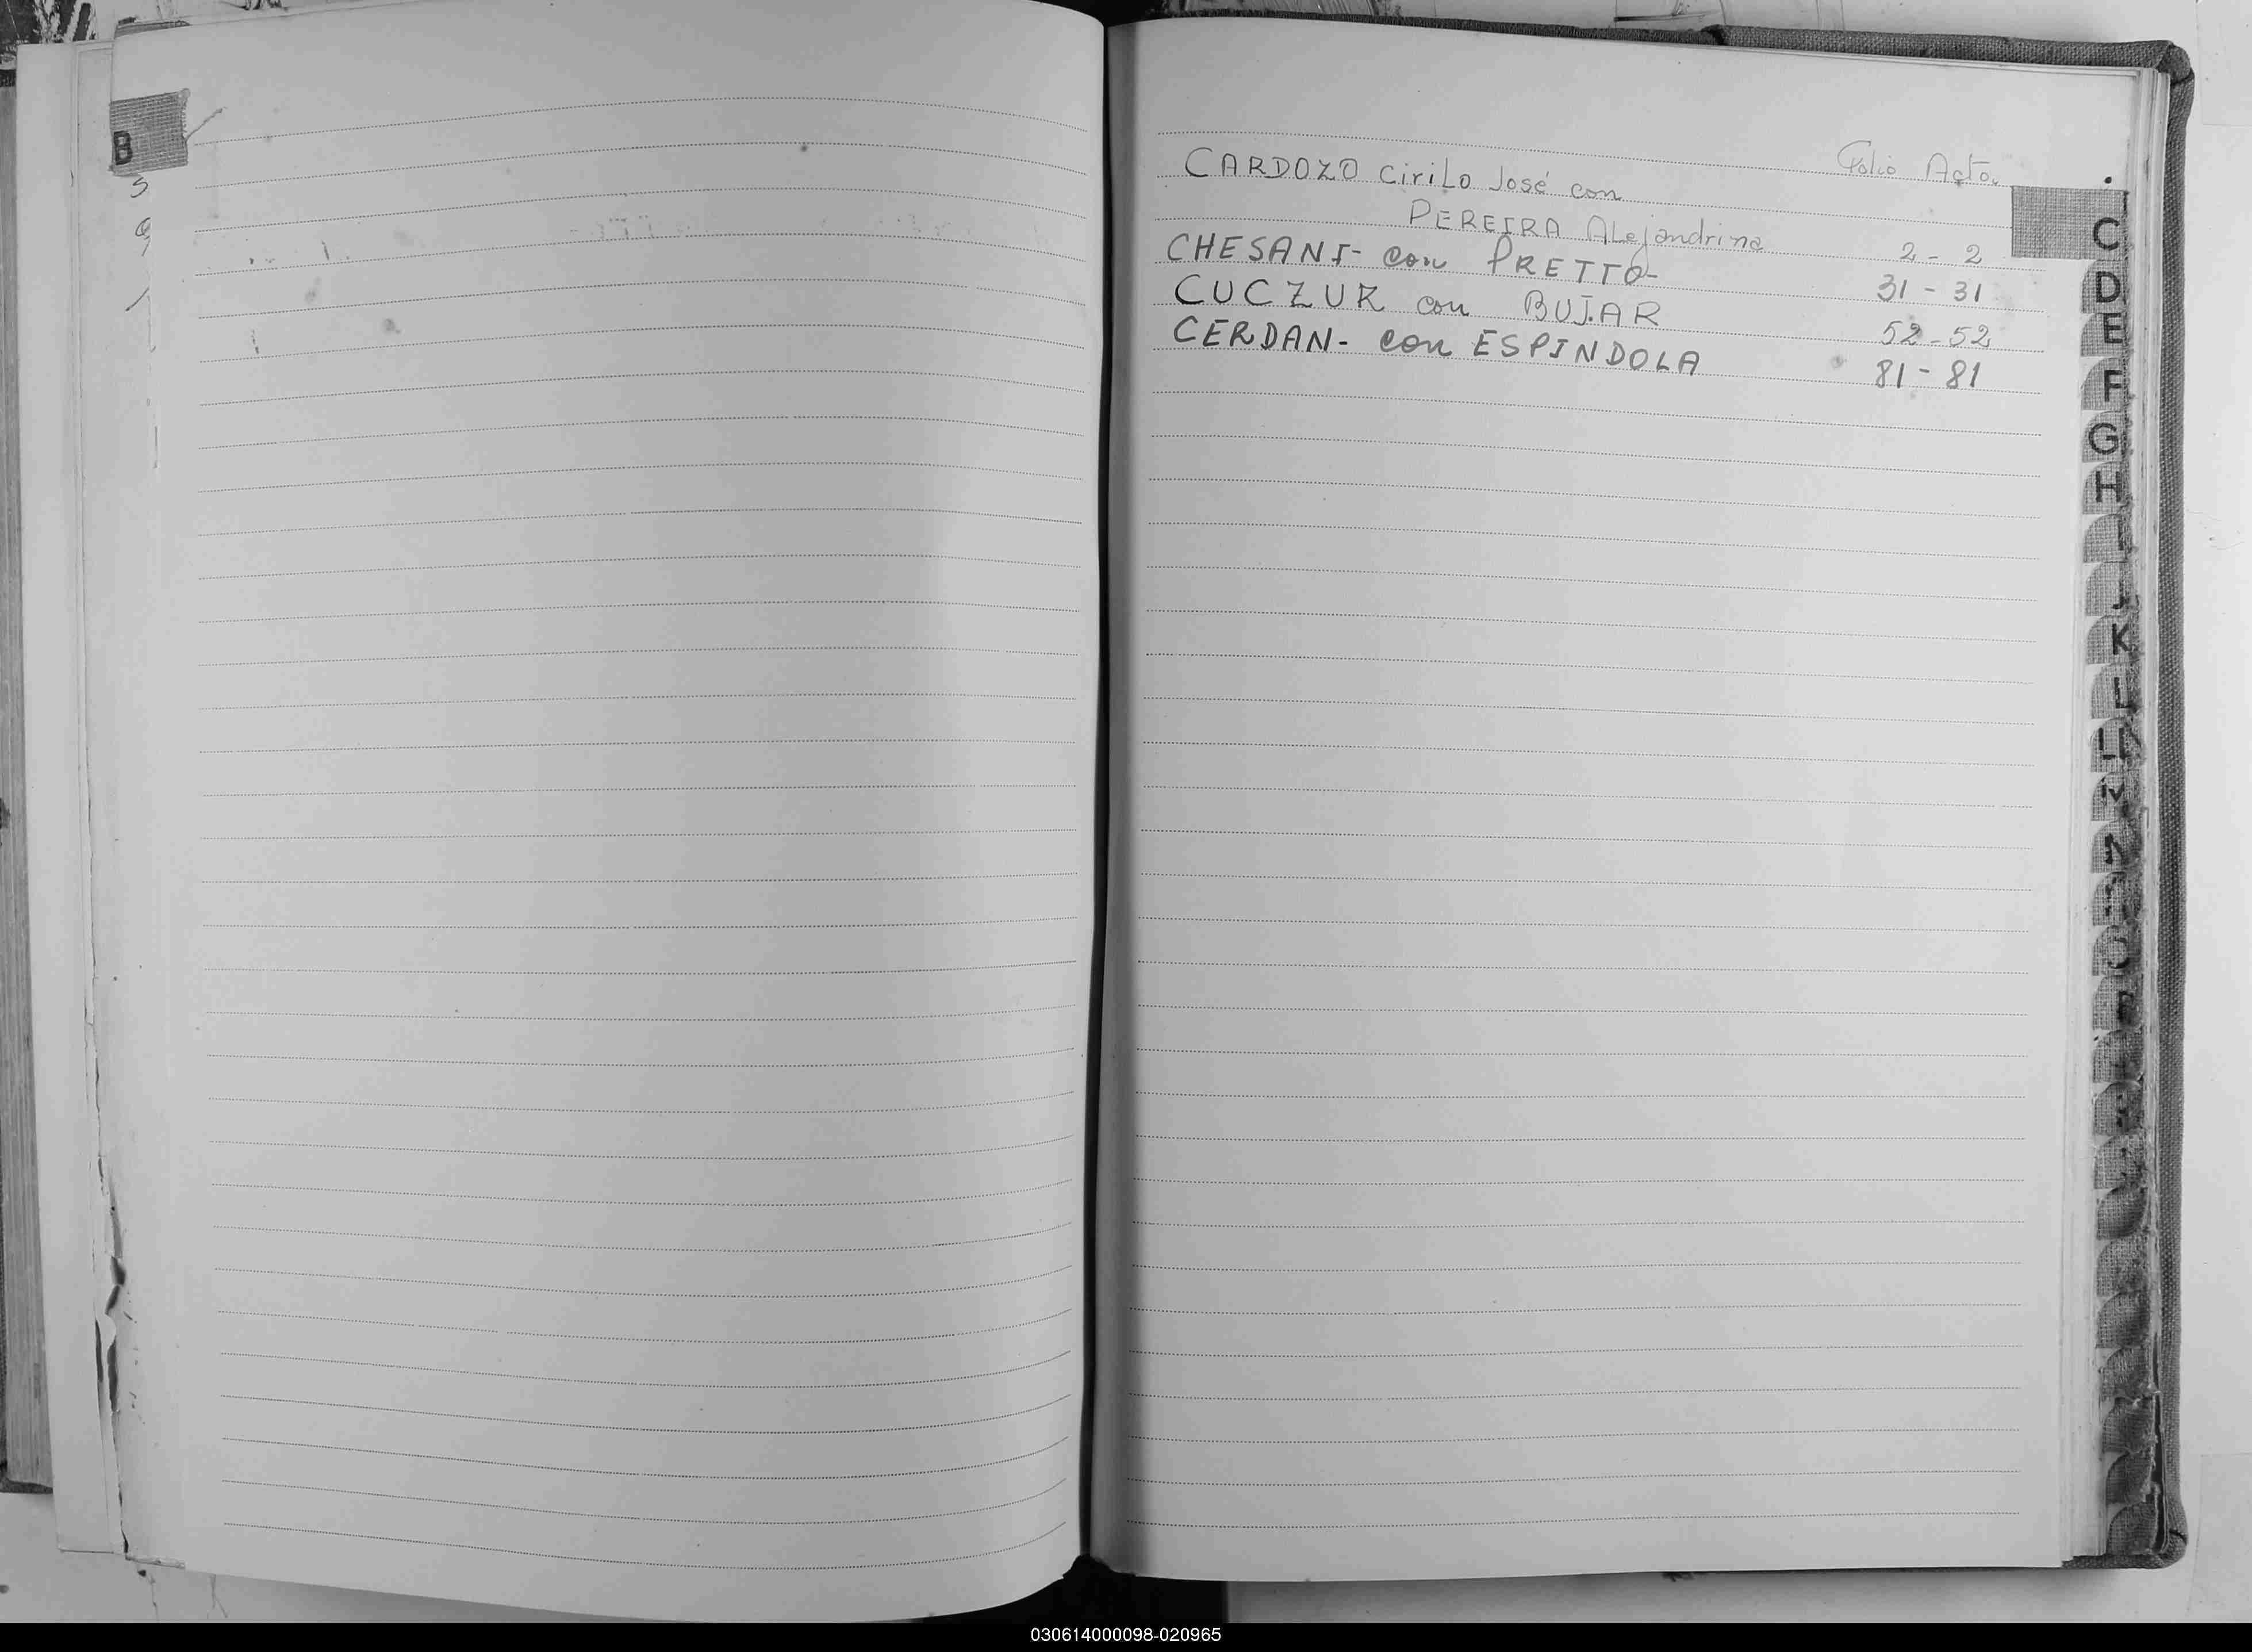 B
Folio Acto.
CARDOZO Cirilo José con
PEREIRA Alejandrina 2 - 2
CHESANI - con PRETTO - 31 - 31
CUCZUR con BUJAR 52 - 52
CERDAN - con ESPINDOLA 81 - 81
C
D
E
F
G
H
I
J
K
L
LL
M
030614000098-020965